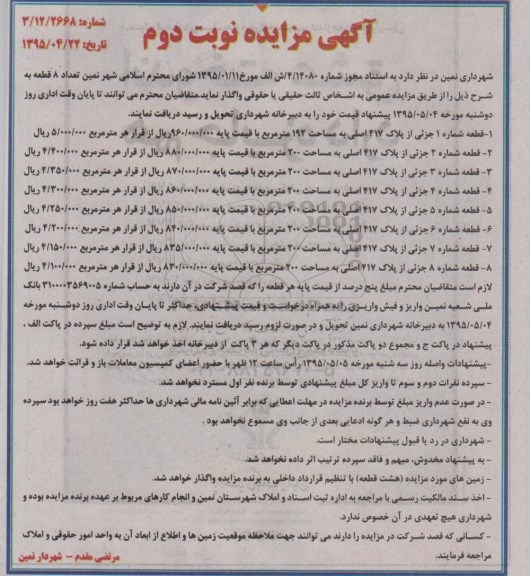 آگهی مزایده نوبت دوم
شماره: ۳/۱۲/۲۶۶۸
تاریخ: ۱۳۹۵/۰۴/۲۲
شهرداری نمین در نظر دارد به استناد مجوز شماره ۴/۱۴۰۸۰/ش الف مورخ ۱۳۹۵/۰۱/۱۱ شورای محترم اسلامی شهر نمین تعداد ۸ قطعه به
شرح ذیل را از طریق مزایده عمومی به اشخاص ثالث حقیقی یا حقوقی واگذار نماید.متقاضیان محترم می توانند تا پایان وقت اداری روز
دوشنبه مورخه ۱۳۹۵/۰۵/۰۴ پیشنهاد قیمت خود را به دبیرخانه شهرداری تحویل و رسید دریافت نمایند.
۱-قطعه شماره ۱ جزئی از پلاک ۴۱۷ اصلی به مساحت ۱۹۲ مترمربع با قیمت پایه ۹۶۰/۰۰۰/۰۰۰ریال از قرار هر مترمربع ۵/۰۰۰/۰۰۰ ریال
۲- قطعه شماره ۲ جزئی از پلاک ۴۱۷ اصلی به مساحت ۲۰۰ مترمربع با قیمت پایه ۸۸۰/۰۰۰/۰۰۰ ریال از قرار هر مترمربع ۴/۴۰۰/۰۰۰ ریال
۳- قطعه شماره ۳ جزئی از پلاک ۴۱۷ اصلی به مساحت ۲۰۰ مترمربع با قیمت پایه ۸۷۰/۰۰۰/۰۰۰ ریال از قرار هر مترمربع ۴/۳۵۰/۰۰۰ ریال
۴- قطعه شماره ۴ جزئی از پلاک ۴۱۷ اصلی به مساحت ۲۰۰ مترمربع با قیمت پایه ۸۶۰/۰۰۰/۰۰۰ ریال از قرار هر مترمربع ۴/۳۰۰/۰۰۰ ریال
۵- قطعه شماره ۵ جزئی از پلاک ۴۱۷ اصلی به مساحت ۲۰۰ مترمربع با قیمت پایه ۸۵۰/۰۰۰/۰۰۰ ریال از قرار هر مترمربع ۴/۲۵۰/۰۰۰ ریال
۶- قطعه شماره ۶ جزئی از پلاک ۴۱۷ اصلی به مساحت ۲۰۰ مترمربع با قیمت پایه ۸۴۰/۰۰۰/۰۰۰ ریال از قرار هر مترمربع ۴/۲۰۰/۰۰۰ ریال
۷- قطعه شماره ۷ جزئی از پلاک ۴۱۷ اصلی به مساحت ۲۰۰ مترمربع با قیمت پایه ۸۳۵/۰۰۰/۰۰۰ ریال از قرار هر مترمربع ۴/۱۵۰/۰۰۰ ریال
۸- قطعه شماره ۸ جزئی از پلاک ۴۱۷ اصلی به مساحت ۲۰۰ مترمربع با قیمت پایه ۸۳۰/۰۰۰/۰۰۰ ریال از قرار هر مترمربع ۴/۱۰۰/۰۰۰ ریال
لازم است متقاضیان محترم مبلغ پنج درصد از قیمت پایه هر قطعه را که قصد شرکت در آن دارند به حساب شماره ۳۱۰۰۰۰۳۵۶۹۰۰۵ بانک
ملی شعبه نمین واریز و فیش واریزی را به همراه درخواست و قیمت پیشنهادی، حداکثر تا پایان وقت اداری روز دوشنبه مورخه
۱۳۹۵/۰۵/۰۴ به دبیرخانه شهرداری نمین تحویل و در صورت لزوم رسید دریافت نمایند. لازم به توضیح است مبلغ سپرده در پاکت الف ،
پیشنهاد در پاکت ج و مجموع دو پاکت مذکور در پاکت دیگر که هر ۳ پاکت از دبیرخانه اخذ خواهد شد قرار داده شود.
-پیشنهادات واصله روز سه شنبه مورخه ۱۳۹۵/۰۵/۰۵ رأس ساعت ۱۲ ظهر با حضور اعضای کمیسیون معاملات باز و قرائت خواهد شد.
- سپرده نفرات دوم و سوم تا واریز کل مبلغ پیشنهادی توسط برنده نفر اول مسترد نخواهد شد.
- در صورت عدم واریز مبلغ توسط برنده مزایده در مهلت اعطایی که برابر آئین نامه مالی شهرداری ها حداکثر هفت روز خواهد بود سپرده
وی به نفع شهرداری ضبط و هر گونه ادعایی بعدی از جانب وی مسموع نخواهد بود .
- شهرداری در رد یا قبول پیشنهادات مختار است.
- به پیشنهاد مخدوش، مبهم و فاقد سپرده ترتیب اثر داده نخواهد شد.
- زمین های مورد مزایده (هشت قطعه) با تنظیم قرارداد داخلی به برنده مزایده واگذار خواهد شد.
- اخذ سند مالکیت رسمی با مراجعه به اداره ثبت اسناد و املاک شهرستان نمین و انجام کارهای مربوط بر عهده برنده مزایده بوده و
شهرداری هیچ تعهدی در آن خصوص ندارد.
- کسانی که قصد شرکت در مزایده را دارند می توانند جهت ملاحظه موقعیت زمین ها و اطلاع از ابعاد آن به واحد امور حقوقی و املاک
مراجعه فرمایند.
مرتضی مقدم – شهردار نمین